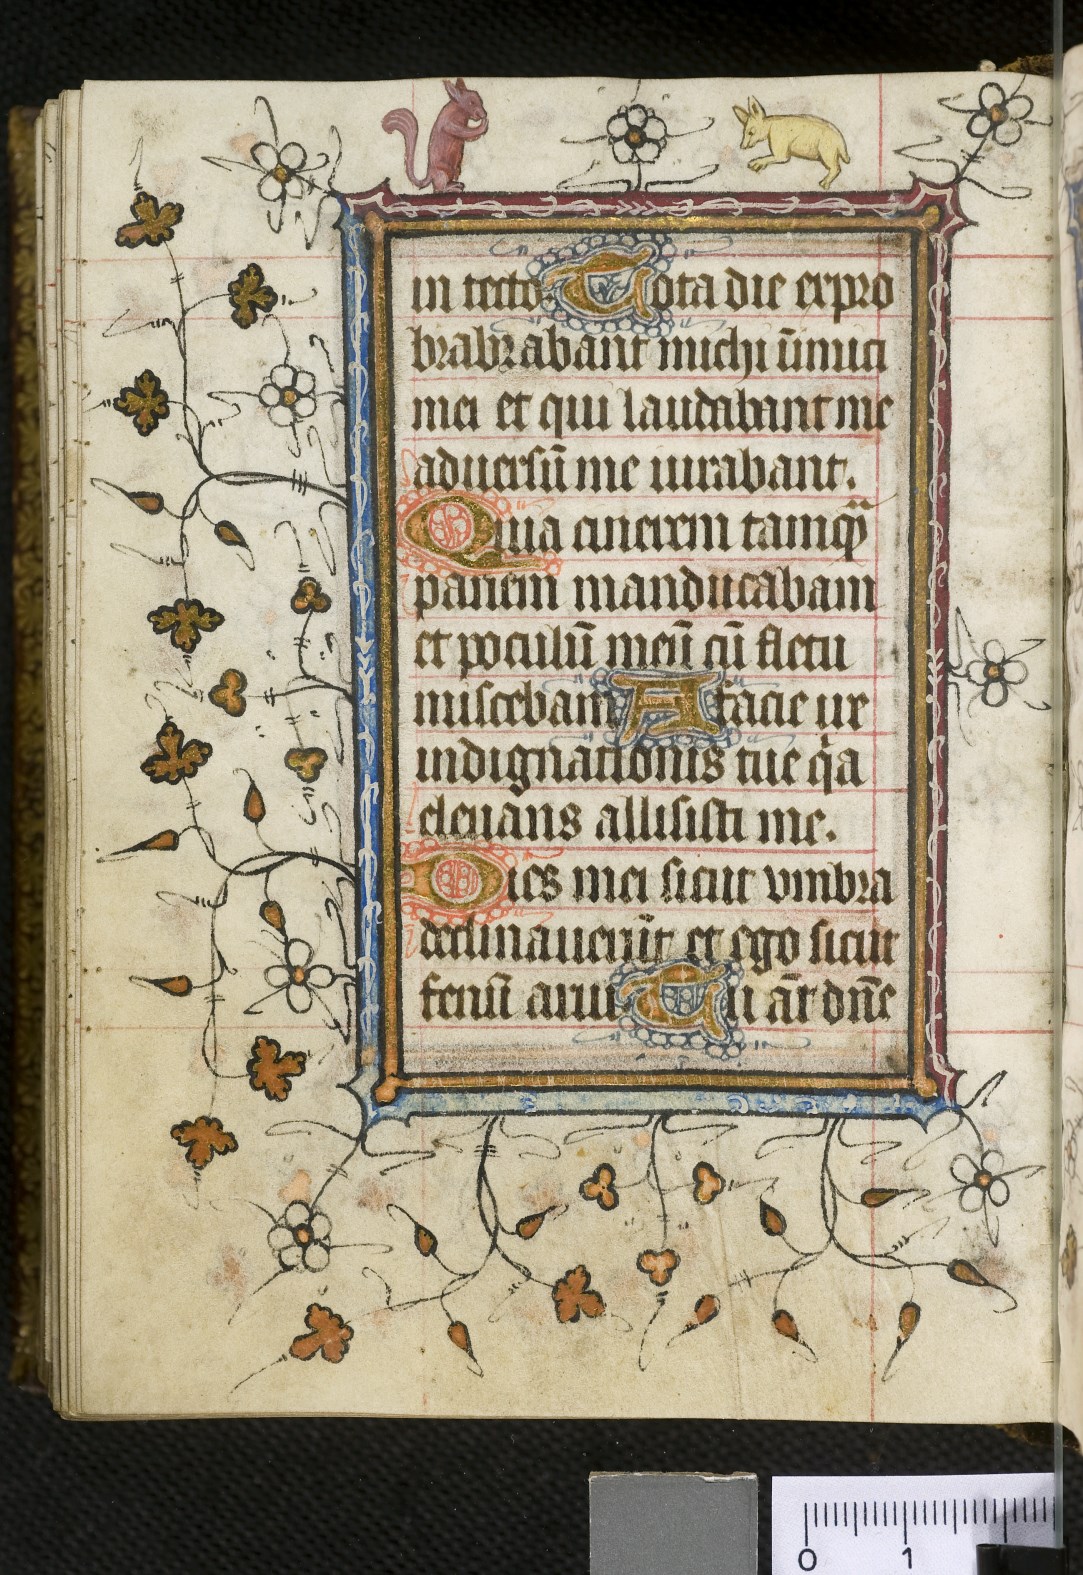 in tecto. Tota die expro
brabrabant michi īimici
mei et qui laudabant me
aduersū me iurabant.
Quia cinerem tamqͣ̄
panem manducabam
et poculū meū cū fletu
miscebam A facie ire
indignationis tue qͥa
eleuans allisisti me.
Dies mei sicut vmbra
declinauerūt et ego sicut
fenū arui Tu aūt dn̄e
0 1